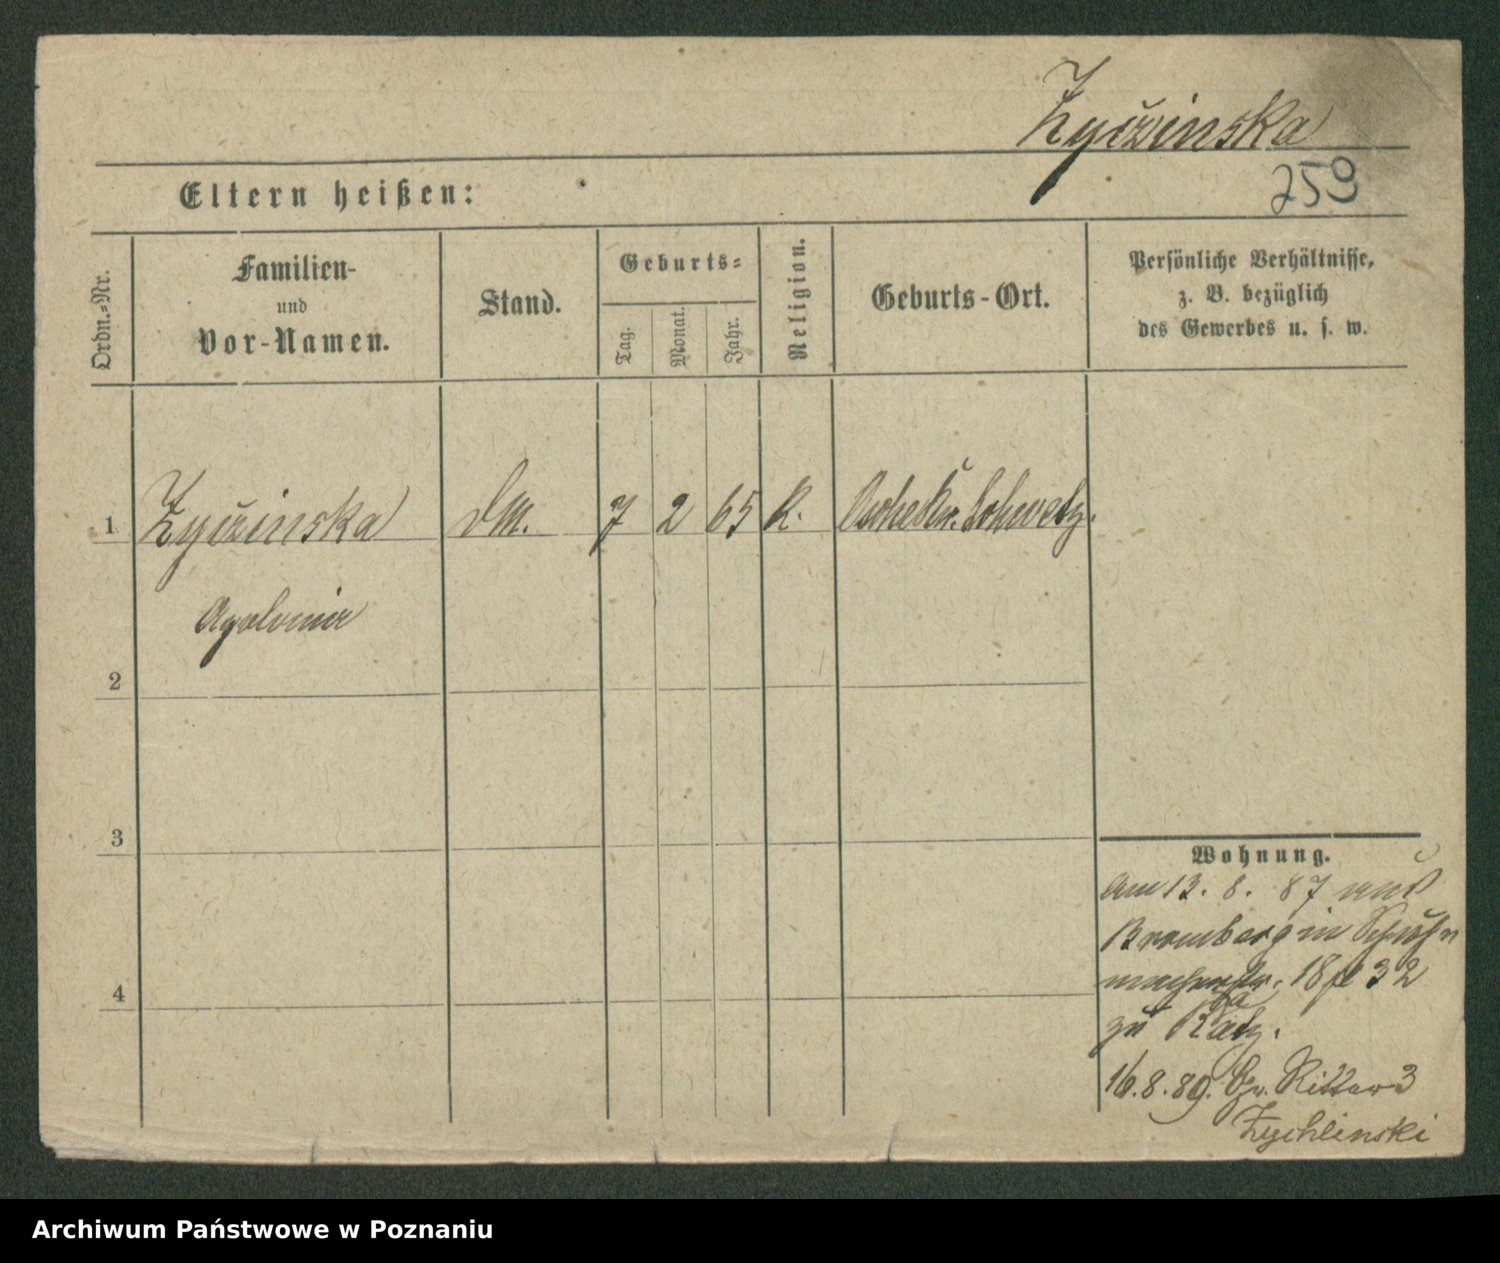 Zyczinska
259
Eltern heißen:
Ordn.-Nr.
Familien-
und
Vor-Namen.
Stand.
Geburts-
Tag.
Monat.
Jahr.
Religion.
Geburts-Ort.
Persönliche Verhältnisse,
z. B. bezüglich
des Gewerbes u. s. w.
1 Zyczinska 7 2 65 K. Schwetz.
Apolonia
2
3
4
Wohnung.
Am 13. 8. 87 aus
Bromberg in Schuh
macherstr. 18 32
zu Katz.
16.8.89. Gr. Ritter 3
Zychlinski
Archiwum Państwowe w Poznaniu